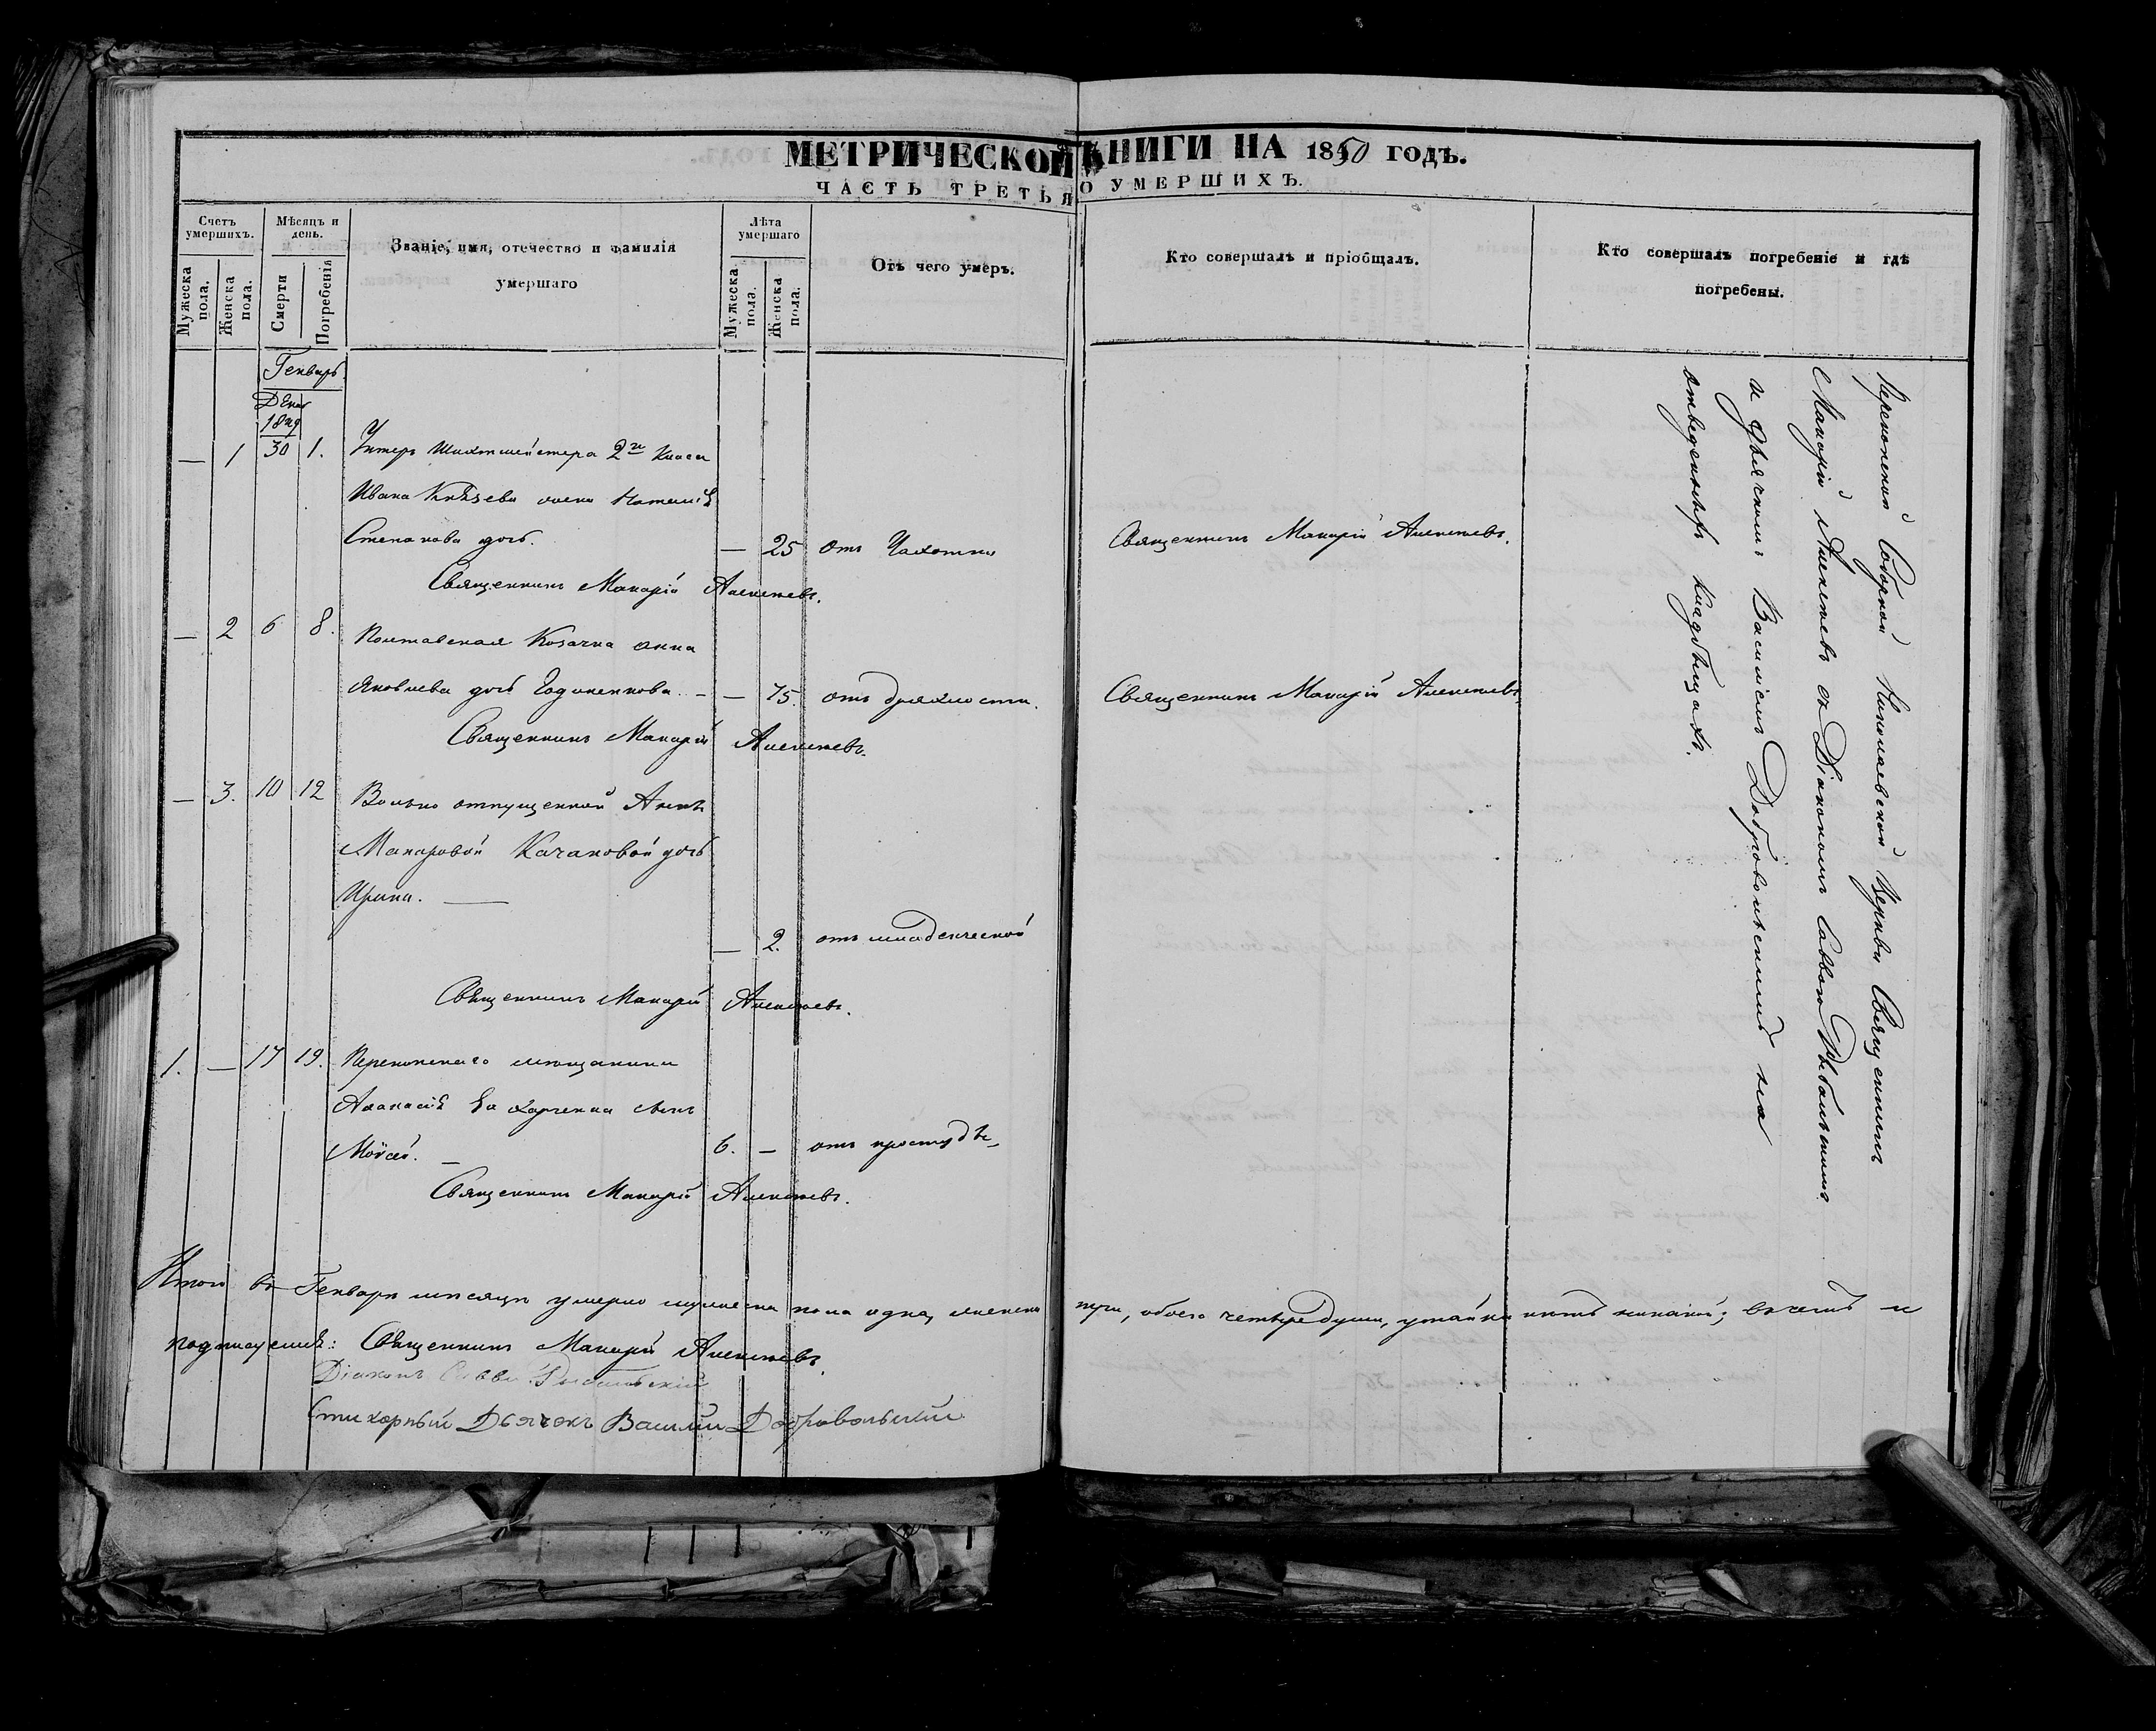 МЕТРИЧЕСКОЙ КНИГИ НА 1850 ГОДЪ.
ЧАСТЬ ТРЕТЬЯ О УМЕРШИХЪ.
Счетъ умершихъ.
Мужеска пола.
Женска пола.
Мѣсяцъ и день.
Смерти
Погребенія
Званіе, имя, отечество и фамилія
умершаго
Лѣта умершаго
Мужеска пола.
Женска пола.
Отъ чего умеръ.
Кто совершалъ и пріобщалъ.
Кто совершалъ погребеніе и гдѣ
погребены.
Генварь
1849
— 1 30 1. Унтеръ Шихтмейстера 2го класса
Ивана Князева жена Наталія
Степанова дочь. — 25 отъ Чахотки Священникъ Макарій Алексѣевъ.
Священникъ Макарій Алексѣевъ.
— 2 6 8. Полтавская Козачка Анна
Яковлева дочь — 75. отъ дряхлости. Священникъ Макарій Алексѣевъ
Священникъ Макарій Алексѣевъ.
— 3. 10 12 Вольно отпущенной Анны
Макаровой Качановой дочь
Ирина. — 2. отъ младенческой
Священникъ Макарій Алексѣевъ.
1. — 17 19. Перекопскаго мѣщанина
Афанасія Захарченка сынъ
Моѵсей. 6. — отъ простуды
Священникъ Макарій Алексѣевъ.
Перекопской Соборной Николаевской Церкви Священникъ
Макарій Алексѣевъ съ Діакономъ Саввою Рыбальскимъ
и Дьячкомъ Василіемъ Добровольскимъ на
отведенномъ кладбищахъ.
Итого въ Генварѣ мѣсяцѣ умерло мужеска пола одна, женска три, обоего четыре души, утайки нѣтъ никакой; въ чемъ и
подписуемся: Священникъ Макарій Алексѣевъ.
Діаконъ Савва Рыбальскій
Стихарный Дьячекъ Василій Добровольскій